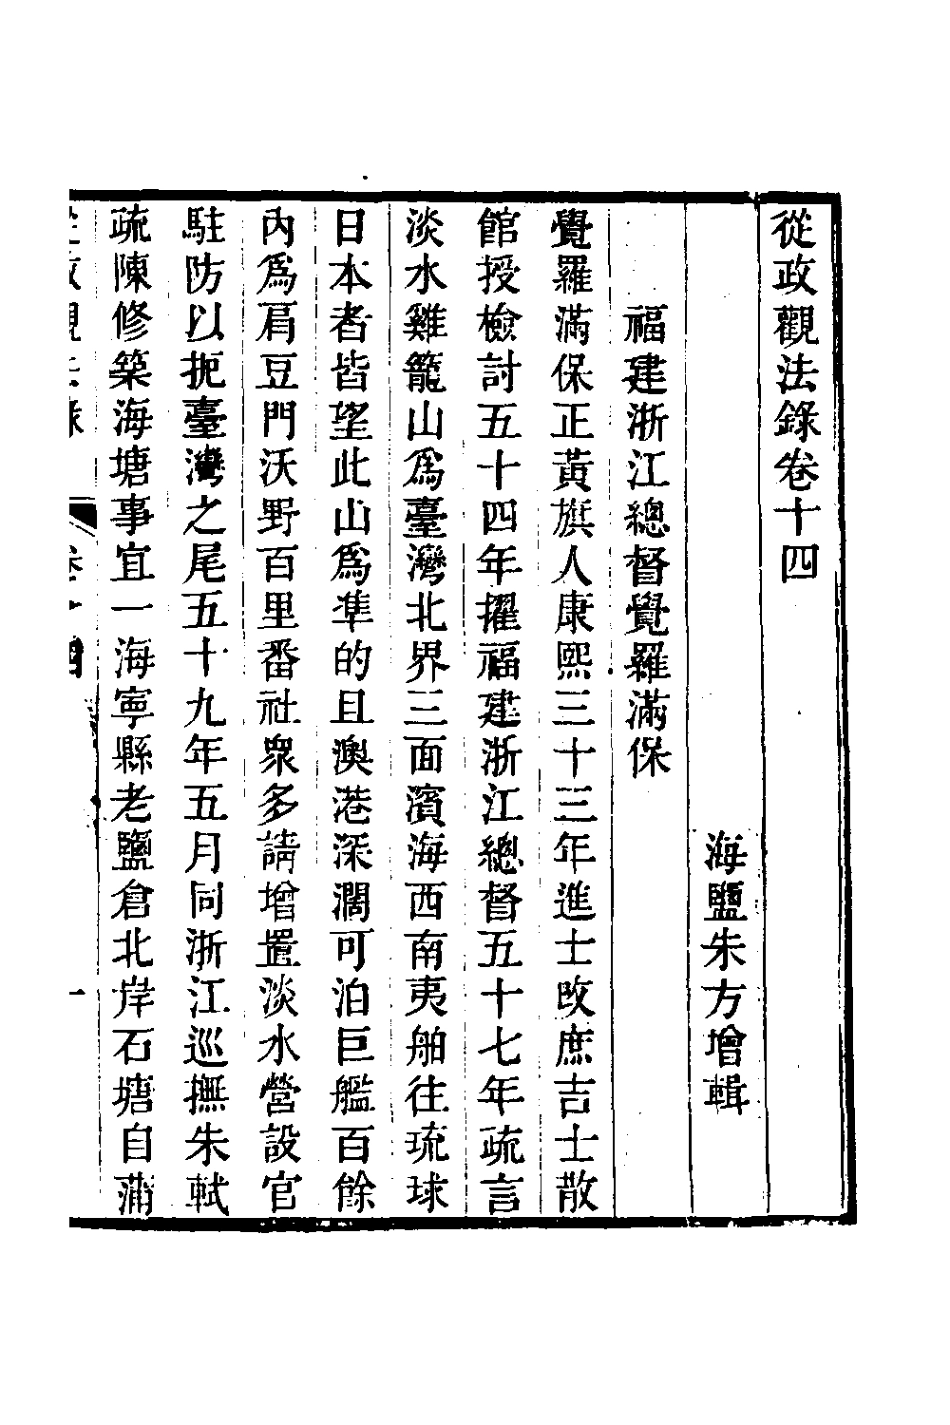 從政觀法錄卷十四
海鹽朱方增輯
福建浙江總督覺羅滿保
覺羅滿保正黃旗人康熙三十三年進士改庶吉士散
館授檢討五十四年擢福建浙江總督五十七年疏言
淡水雞籠山爲臺灣北界三面濱海西南夷舶往琉球
日本者皆望此山爲準的且澳港深濶可泊巨艦百餘
內爲肩豆門沃野百里番社眾多請增置淡水營設官
駐防以扼臺灣之尾五十九年五月同浙江巡撫朱軾
疏陳修築海塘事宜一海寧縣老鹽倉北岸石塘自蒲